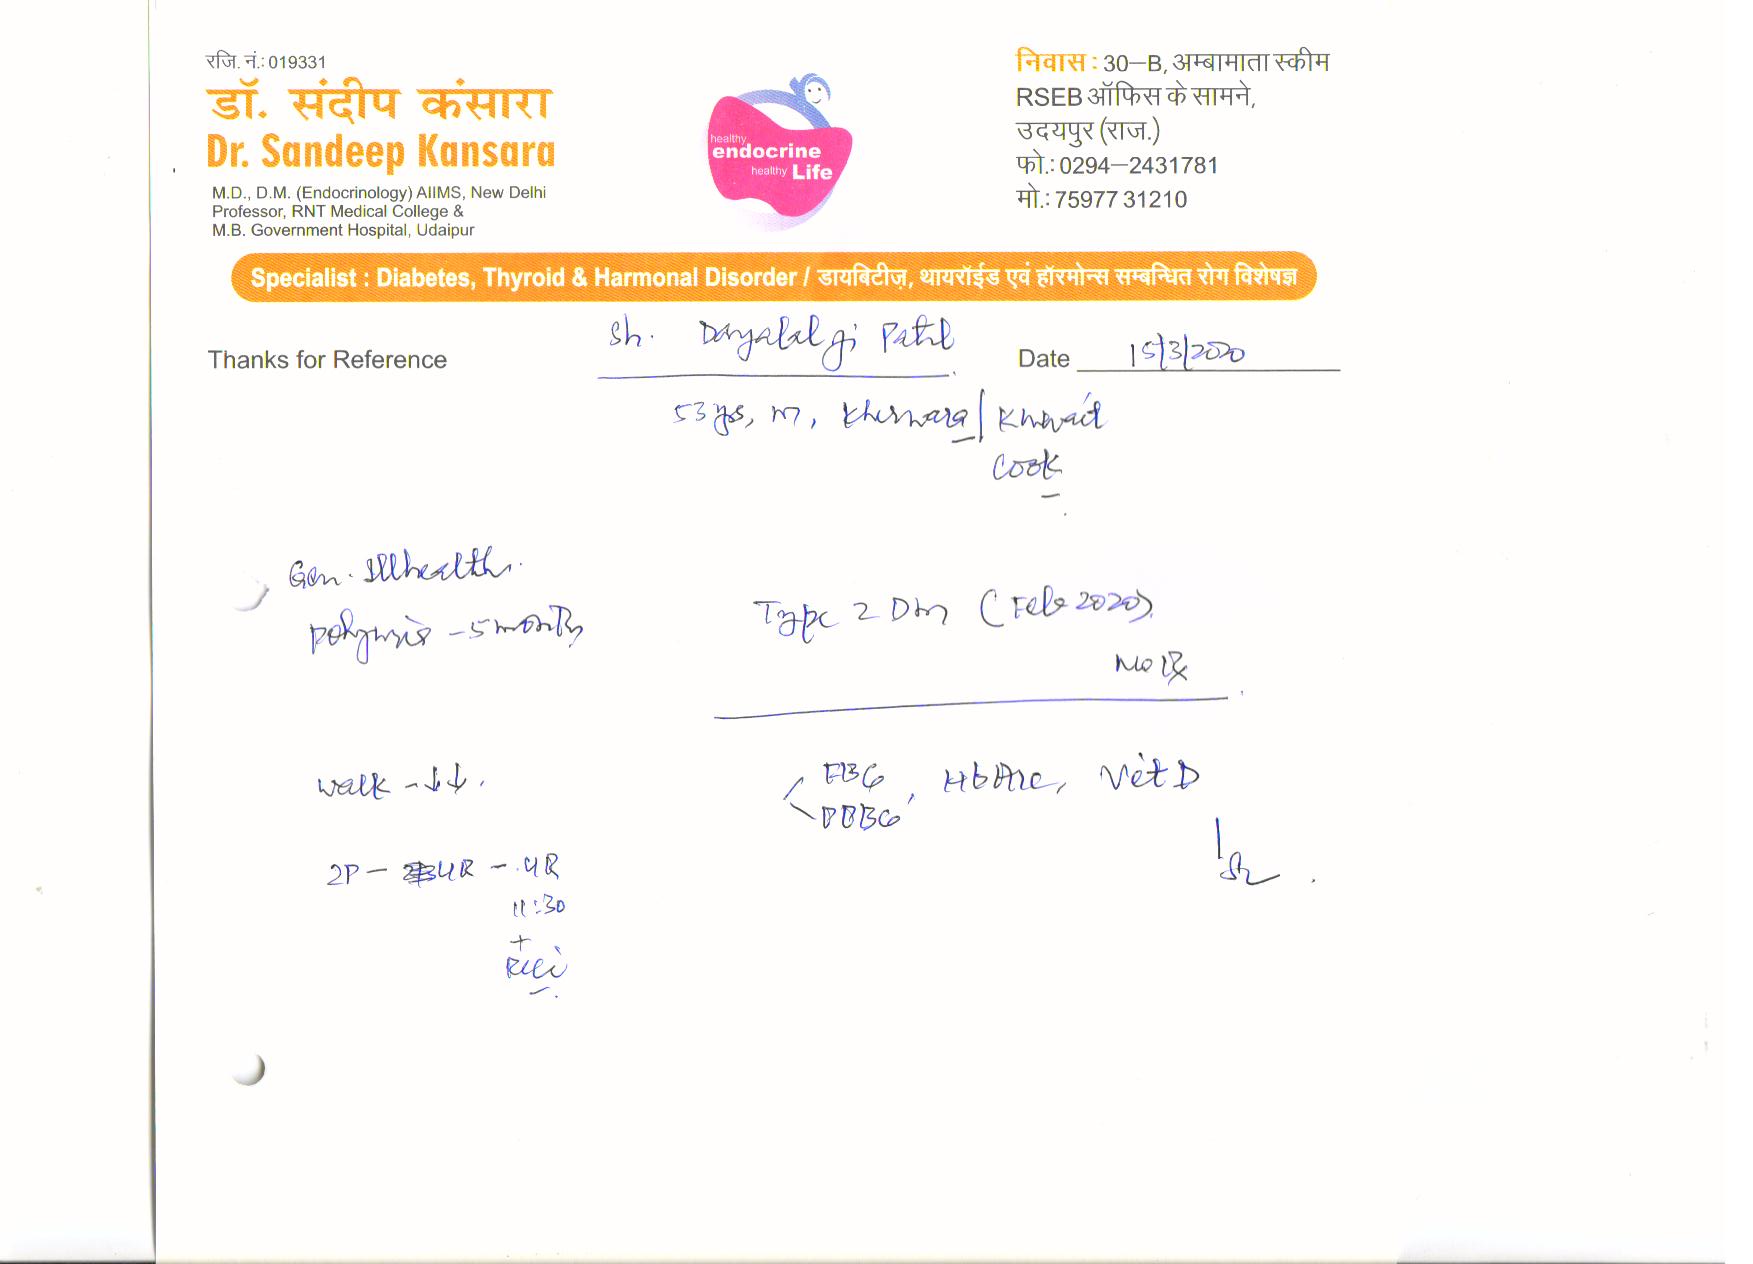 रजि. नं.: 019331
डॉ. संदीप कंसारा
Dr. Sandeep Kansara
M.D., D.M. (Endocrinology) AIIMS, New Delhi
Professor, RNT Medical College &
M.B. Government Hospital, Udaipur
healthy
endocrine
healthy Life
निवास : 30–B, अम्बामाता स्कीम
RSEB ऑफिस के सामने,
उदयपुर (राज.)
फो.: 0294–2431781
मो.: 75977 31210
Specialist : Diabetes, Thyroid & Harmonal Disorder / डायबिटीज़, थायरॉईड एवं हॉरमोन्स सम्बन्धित रोग विशेषज्ञ
Thanks for Reference
Sh. Dayalal ji Patil
Date 15/3/2020
53 yrs, M, Kherwara / Kuwait
Cook
Gen. Illhealth
– 5 months
Type 2 DM (Feb 2020)
No Rx
Walk - ↓↓.
FBG
PPBG, HbA1c, Vit D
2P – 4R – 4R
11:30
+